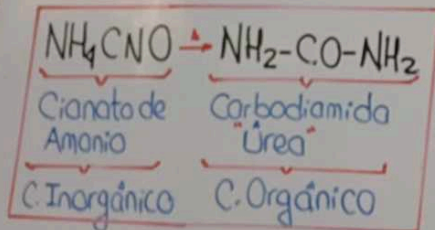 NH₄CNO →Δ NH₂-CO-NH₂
Cianato de Carbodiamida
Amonio "Úrea"
C. Inorgánico C. Orgánico